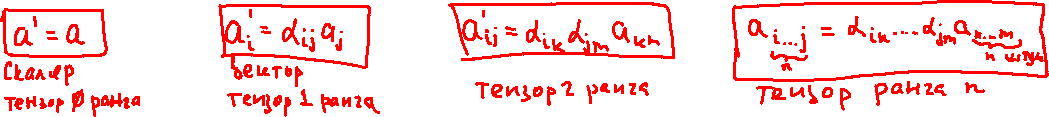 a' = a
скаляр
тензор 0 ранга
a'_i = α_ij a_j
вектор
тензор 1 ранга
a'_ij = α_ik α_jm a_km
тензор 2 ранга
a'_i...j = α_ik .... α_jm a_k...m
n n штук
тензор ранга n